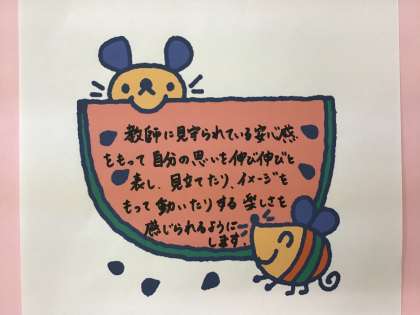 教師に見守られている安心感
をもって自分の思いを伸び伸びと
表し、見立てたり、イメージを
もって動いたりする楽しさを
感じられるように
します。